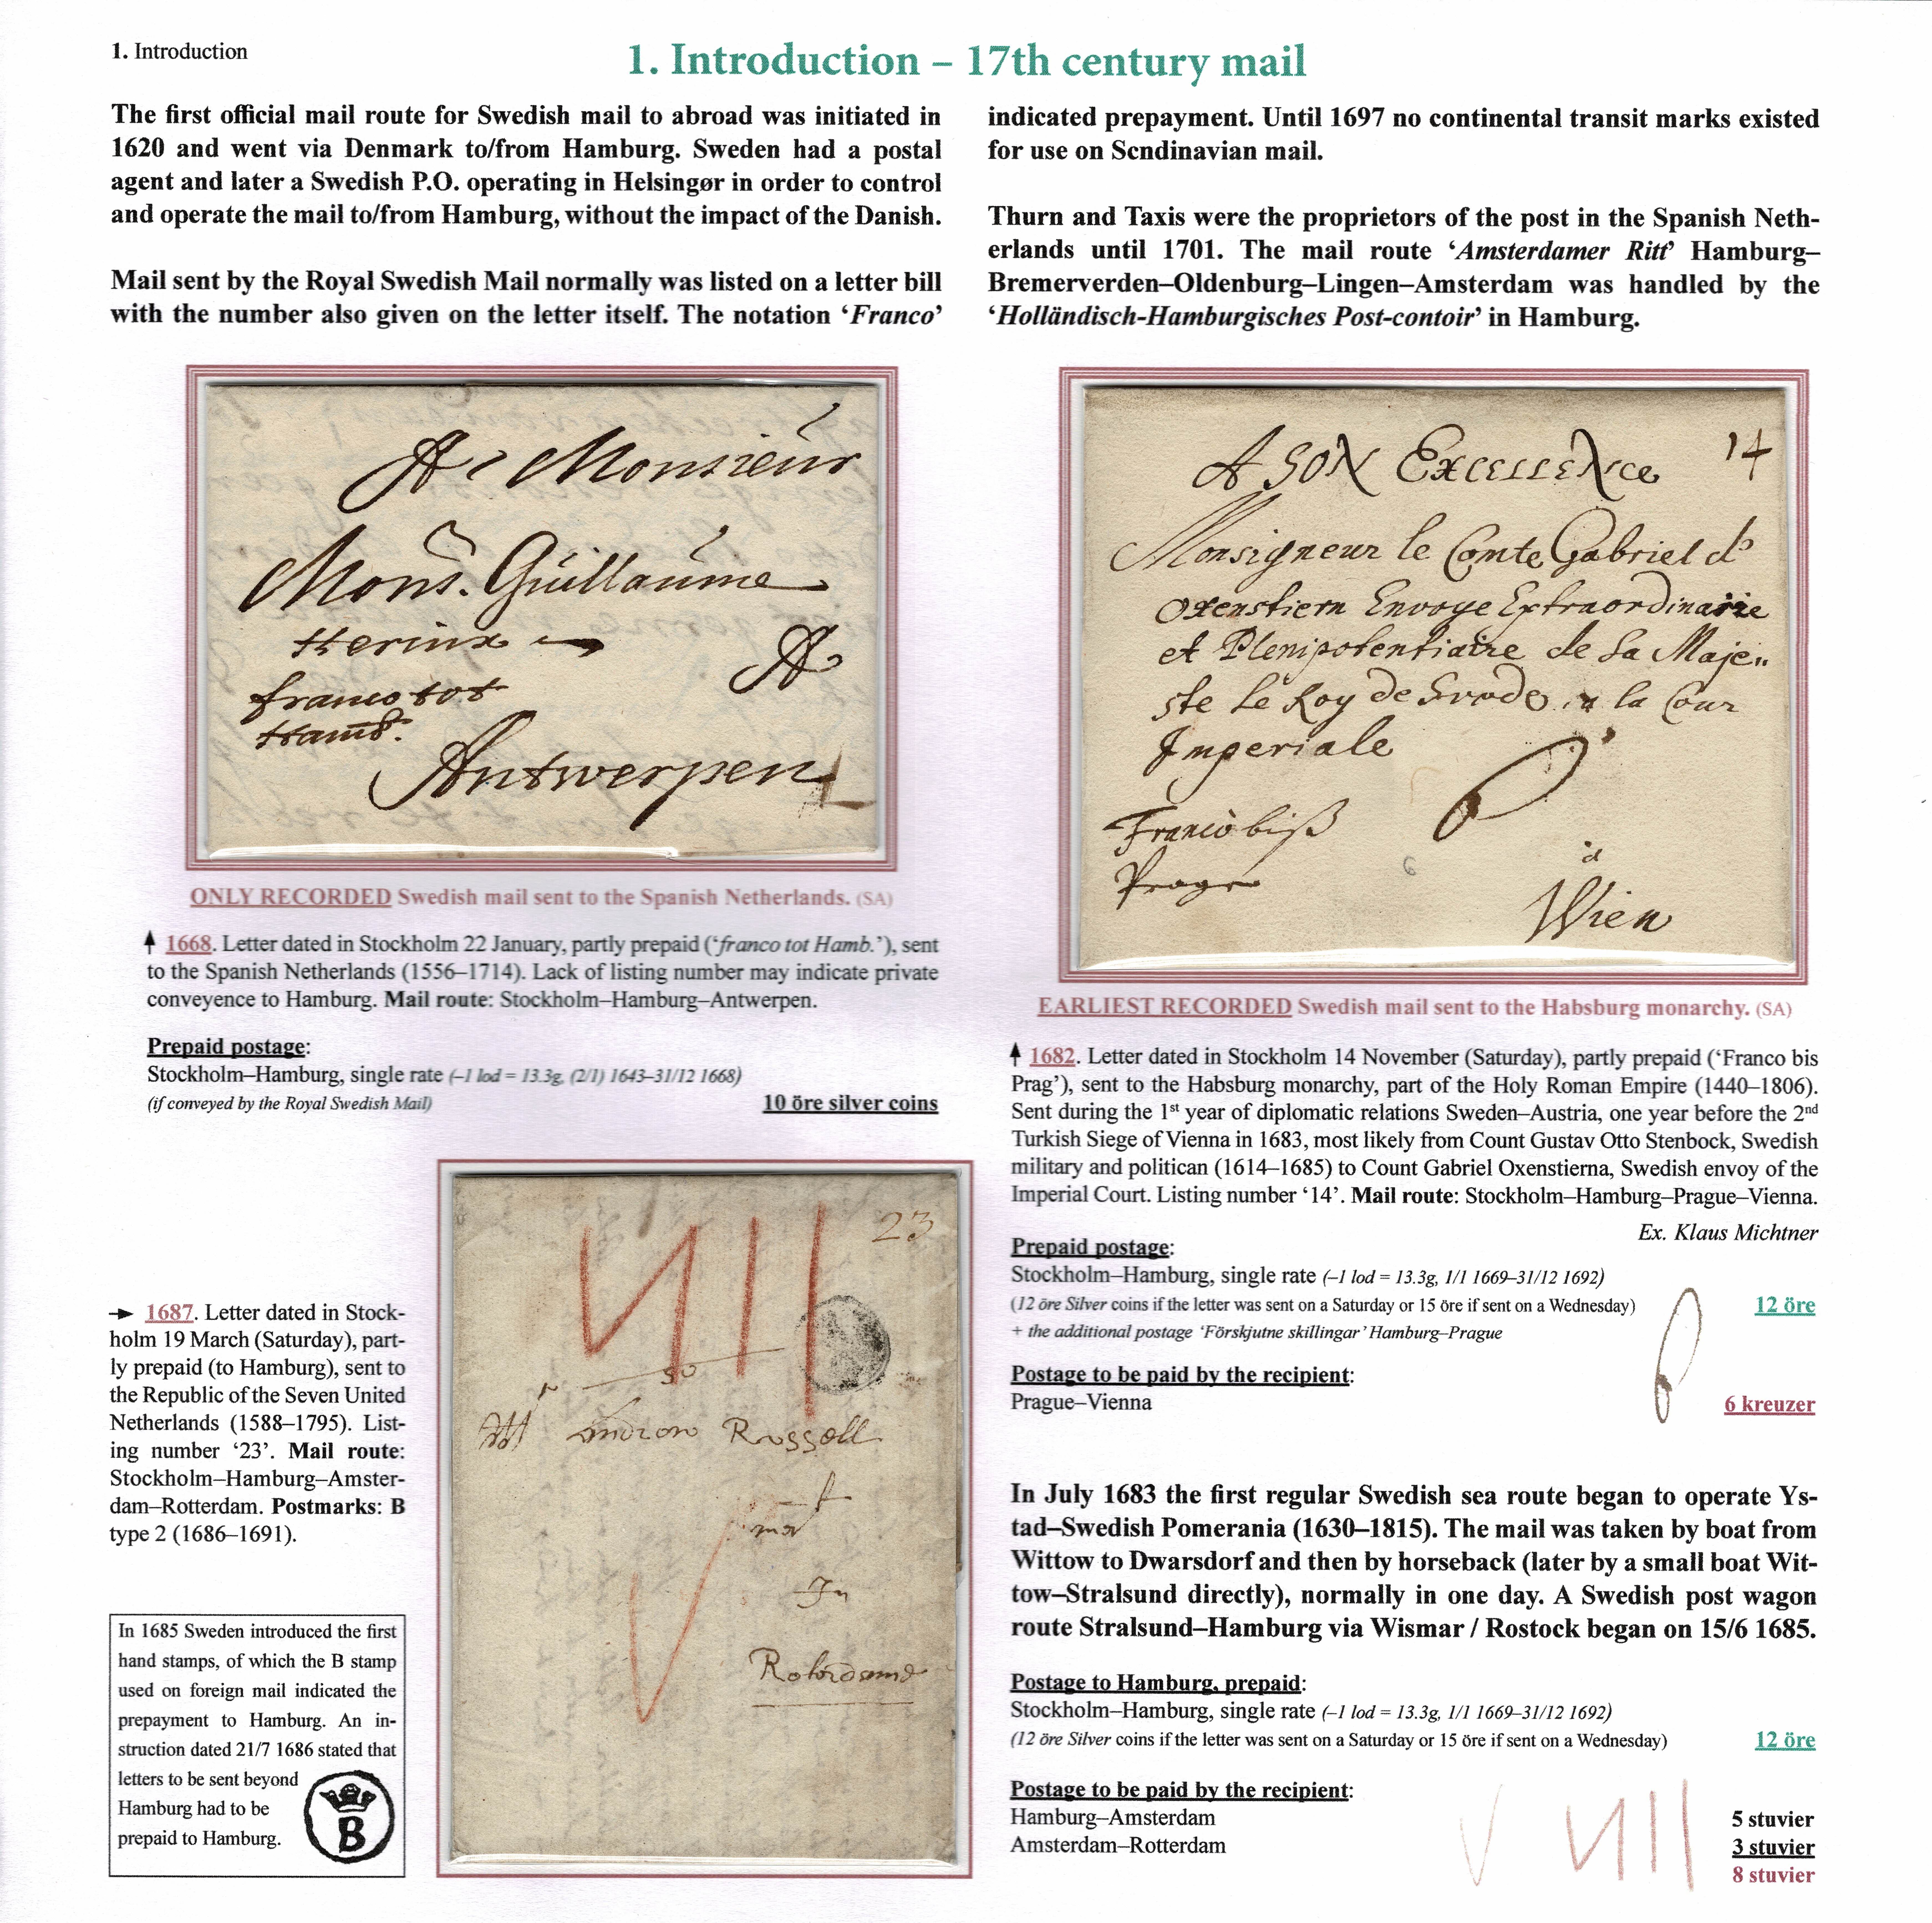 1. Introduction
1. Introduction – 17th century mail
The first official mail route for Swedish mail to abroad was initiated in
1620 and went via Denmark to/from Hamburg. Sweden had a postal
agent and later a Swedish P.O. operating in Helsingør in order to control
and operate the mail to/from Hamburg, without the impact of the Danish.
Mail sent by the Royal Swedish Mail normally was listed on a letter bill
with the number also given on the letter itself. The notation ‘Franco’
indicated prepayment. Until 1697 no continental transit marks existed
for use on Scndinavian mail.
Thurn and Taxis were the proprietors of the post in the Spanish Neth-
erlands until 1701. The mail route ‘Amsterdamer Ritt’ Hamburg–
Bremerverden–Oldenburg–Lingen–Amsterdam was handled by the
‘Holländisch-Hamburgisches Post-contoir’ in Hamburg.
A Monsieur
Mons. Guillaume
Herinx
A
franco tot
Hamb.
Antwerpen
ONLY RECORDED Swedish mail sent to the Spanish Netherlands. (SA)
1668. Letter dated in Stockholm 22 January, partly prepaid (‘franco tot Hamb.’), sent
to the Spanish Netherlands (1556–1714). Lack of listing number may indicate private
conveyence to Hamburg. Mail route: Stockholm–Hamburg–Antwerpen.
Prepaid postage:
Stockholm–Hamburg, single rate (–1 lod = 13.3g, (2/1) 1643–31/12 1668)
(if conveyed by the Royal Swedish Mail) 10 öre silver coins
14
A SON EXCELLENce
Monsigneur le Comte Gabriel d'
Oxenstiern Envoye Extraordinaire
et Plenipotentiaire de Sa Maje..
ste Le Roy de Svede a la Cour
Imperiale
6
Franco biß
Prage
6
a
Wien
EARLIEST RECORDED Swedish mail sent to the Habsburg monarchy. (SA)
1682. Letter dated in Stockholm 14 November (Saturday), partly prepaid (‘Franco bis
Prag’), sent to the Habsburg monarchy, part of the Holy Roman Empire (1440–1806).
Sent during the 1st year of diplomatic relations Sweden–Austria, one year before the 2nd
Turkish Siege of Vienna in 1683, most likely from Count Gustav Otto Stenbock, Swedish
military and politican (1614–1685) to Count Gabriel Oxenstierna, Swedish envoy of the
Imperial Court. Listing number ‘14’. Mail route: Stockholm–Hamburg–Prague–Vienna.
Ex. Klaus Michtner
Prepaid postage:
Stockholm–Hamburg, single rate (–1 lod = 13.3g, 1/1 1669–31/12 1692)
(12 öre Silver coins if the letter was sent on a Saturday or 15 öre if sent on a Wednesday) 12 öre
+ the additional postage ‘Förskjutne skillingar’ Hamburg–Prague
Postage to be paid by the recipient:
Prague–Vienna 6 6 kreuzer
1687. Letter dated in Stock-
holm 19 March (Saturday), part-
ly prepaid (to Hamburg), sent to
the Republic of the Seven United
Netherlands (1588–1795). List-
ing number ‘23’. Mail route:
Stockholm–Hamburg–Amster-
dam–Rotterdam. Postmarks: B
type 2 (1686–1691).
In 1685 Sweden introduced the first
hand stamps, of which the B stamp
used on foreign mail indicated the
prepayment to Hamburg. An in-
struction dated 21/7 1686 stated that
letters to be sent beyond
Hamburg had to be
prepaid to Hamburg.
B
23
Andrew Russell
In
Roterdame
In July 1683 the first regular Swedish sea route began to operate Ys-
tad–Swedish Pomerania (1630–1815). The mail was taken by boat from
Wittow to Dwarsdorf and then by horseback (later by a small boat Wit-
tow–Stralsund directly), normally in one day. A Swedish post wagon
route Stralsund–Hamburg via Wismar / Rostock began on 15/6 1685.
Postage to Hamburg, prepaid:
Stockholm–Hamburg, single rate (–1 lod = 13.3g, 1/1 1669–31/12 1692)
(12 öre Silver coins if the letter was sent on a Saturday or 15 öre if sent on a Wednesday) 12 öre
Postage to be paid by the recipient:
Hamburg–Amsterdam 5 stuvier
Amsterdam–Rotterdam 3 stuvier
8 stuvier